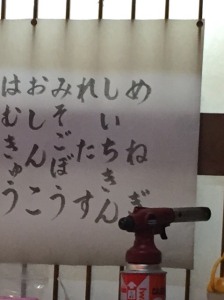 めねぎ
しいちきん
れたす
みそごぼう
おしんこ
はむきゅう